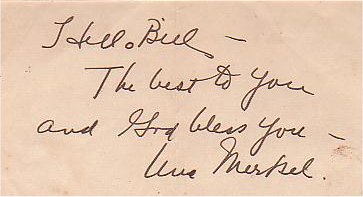 Hello Bill –
The best to you
and God bless you –
Una Merkel.